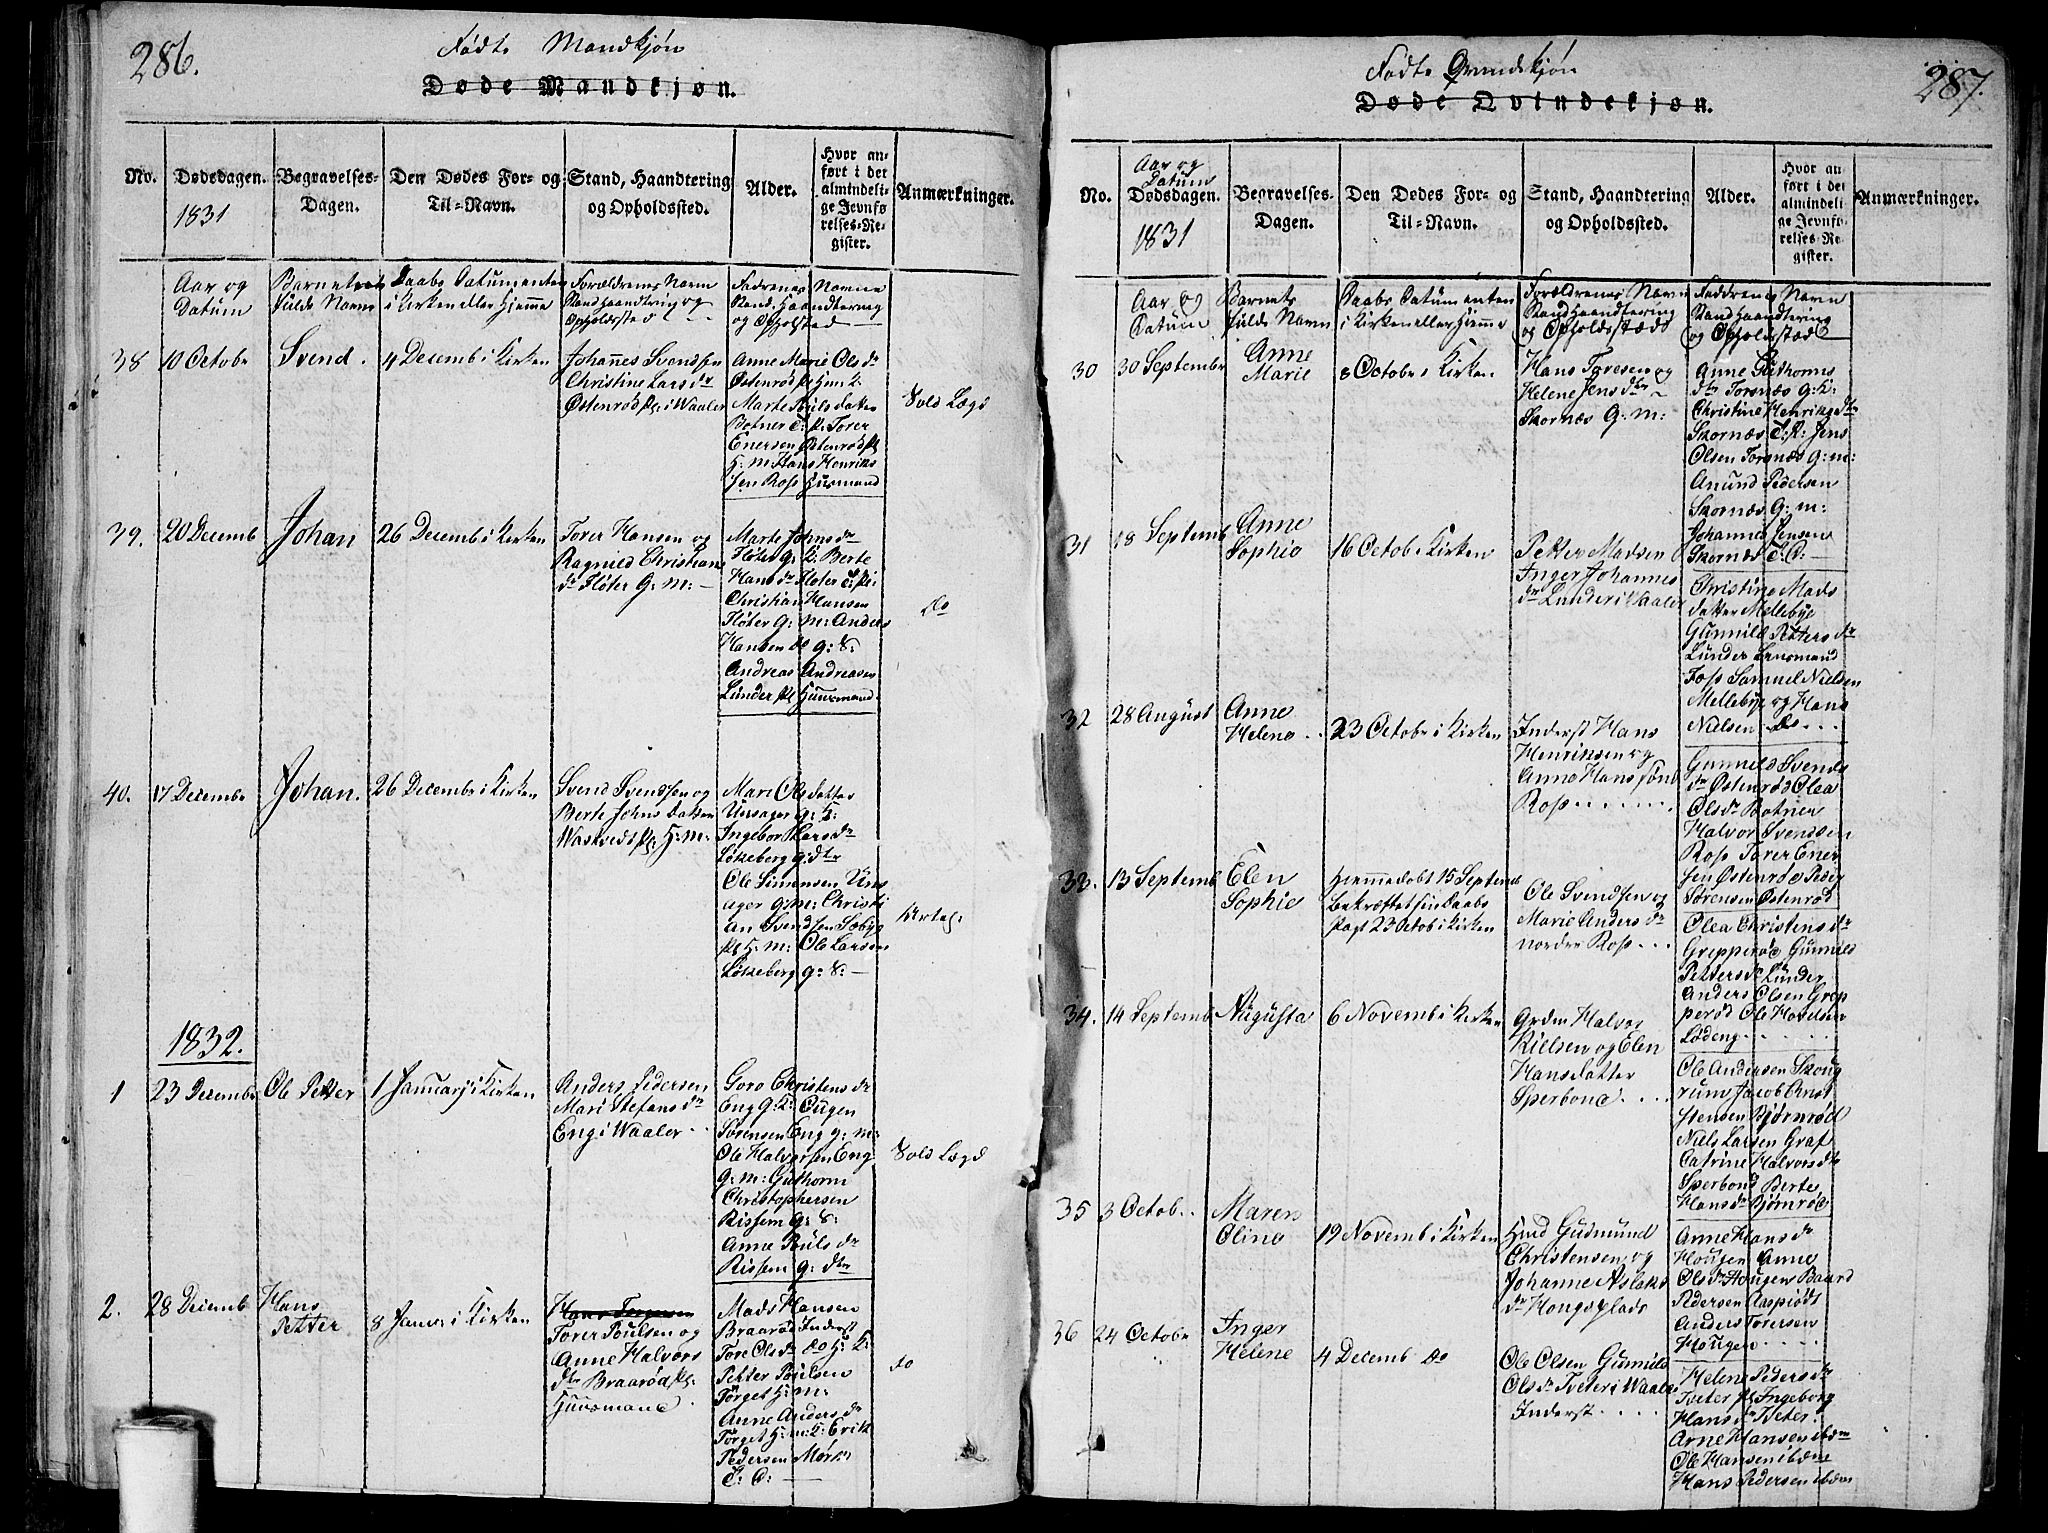 286.
Fødte Mandkjøn
Døde Mandkjøn.
No.
Dødedagen.
1831
Begravelses-
Dagen.
Den Dødes For- og
Til-Navn.
Stand, Haandtering
og Opholdssted.
Alder.
Hvor an-
ført i det
almindeli-
ge Jevnfø-
relses-Re-
gister.
Anmærkninger.
Aar og
Datum
Barnets
fulde Navn
Daabs Datum enten
i Kirken eller Hjemme
Forældrenes Navn
Stand Haandtering og
Opholdssted
Faddrenes Navne
Stand, Haandtering
og Opholsted
38
10 Octobr
Svend.
4 Decemb i Kirken
Johannes Svendsen
Christine Larsdr
Østenrød pl: i Waaler
Anne Marie Olsdr
Østenrød pl H:m K:
Marte Pouls datter
Botner T: P: Torer
Enersen Østenrød pl
H: m: Hans Henrik-
sen Ross Huusmand
Vold Lægd
39.
20 Decemb
Johan
26 Decemb i Kirken
Torer Hansen og
Ragnild Christians
dr Fløter G: M:
Marte Johnsdr
Fløter G: K: Berte
Hansdr Fløter T: Pi:
Christian Hansen
Fløter G: m: Anders
Hansen do G: S:
Andreas Andreasen
Lunder pl Huusmand
do
40.
17 Decembr
Johan.
26 Decembr i Kirken
Svend Svendsen og
Berte Johns datter
Waskvedt pl: H: M:
Mari Ols datter
Unsager G: K:
Ingebor Larsdr
Løkeberg G: dtr
Ole Simensen Uns-
ager G: M: Christi
an Svendsen Sæby
pl H: m: Ole Larsen
Løkeberg G: S:
1832.
1
23 Decembr
Ole Petter
1 Januarj i Kirken
Anders Pedersen
Mari Stefansdr
Eng i Waaler
Goro Christensdr
Eng G: K: Ougen
Sørensen Eng G: m:
Ole Halvorsen Eng
G: m: Guthorm
Christophersen
Rissem G: S:
Anne Pouls dr
Rissem G: dtr
Vold Lægd
2.
28 Decemb
Hans
Petter
8 Januar i Kirken
Torer Poulsen og
Anne Halvors
dtr Braarød pl:
Huusmand
Mads Hansen
Braarød Inderst
Tore Olsdr do H: K:
Petter Poulsen
Torget H: m:
Anne Anders dr
Torget H: m: K: Erik
Pedersen Mørk
T: D:
do
287.
Fødte Qvindekjøn
Døde Qvindekjøn.
No.
Aar og
Datum
Dødsdagen.
1831
Begravelses-
Dagen.
Den Dødes For- og
Til-Navn.
Stand, Haandtering
og Opholdssted.
Alder.
Hvor an-
ført i det
almindeli-
ge Jevnfø-
relses-Re-
gister.
Anmærkninger.
Aar og
Datum
Barnets
fulde Navn
Daabs Datum enten
i Kirken eller Hiemme
Forældrenes Navn
Stand Haandtering
og Opholdsstæd
Faddrenes Navn
Stand Haandtering
og Opholdsstæd
30
30 Septembr
Anne
Marie
8 Octobr i Kirken.
Hans Toresen og
Helene Jens dtr
Skornæs G: M:
Anne Guthorms
dtr Torsnæs G: K:
Christine Henriks dtr
Skornæs T: P: Jens
Olsen Torsnæs G: m:
Amund Pedersen
Skornæs G: m:
Johannes Jensen
Skornæs T: D:
31
18 Septemb
Anne
Sophie
16 Octobr i Kirken
Petter Madsen
Inger Johannes
dr Lunder i Waaler
Christine Mads
datter Mellebye
Gunnild Petters dr
Lunder Lensmand
Foss Samuel Nielsen
Mellebye og Hans
Nielsen do
32
28 August
Anne
Helene
23 Octobr i Kirken
Inderst Hans
Henriksen og
Anne Hans
Ross
Gunnild Svends
dr Østenrød Olea
Olsdr Botner
Halvor Svendsen
Ross Torer Ener
sen Østenrød Peder
Sørensen Østenrød
33.
13 Septemb
Elen
Sophie
Hjemmedøbt 15 Septemb
Bekræftet sin Daabs
Pagt 23 Octob i Kirken
Ole Svendsen og
Marie Andersdr
nordre Ross
Olea Christensdr
Grepperød Gunnild
Pettersdr Lunder
Anders Olsen Grep
perød Ole Hovelsen
Lødeng
34.
14 Septemb
Augusta
6 Novemb i Kirken
Halvor
Kielsen og Elen
Hansdatter
Sperbond
Ole Andersen Skoug
rum Jacob Arnst
stensen Bjørnrød
Niels Larsen Graf
Catrine Halvorsdr
Sperbond Berte
Hansdr Bjørnrød
35
3 Octob
Maren
Oline
19 Novemb i Kirken
Hmd Gudmund
Christensen og
Johanne Aslaks
dr Hougs plads
Anne Hansdr
Hougen Anne
Olsdr Hougen Baard
Pedersen Raspiødt
Anders Toresen
Hougen
36
24 Octobr
Inger
Helene
4 Decemb do
Ole Olsen Gunnild
Olsdr Tveter i Waaler
Inderst
Helene Pedersdr
Tveter pl Ingeborg
Hansdr Tveter
Arne Hansen ibdm
Ole Hansen ibdm
Hans Pedersen ibdm